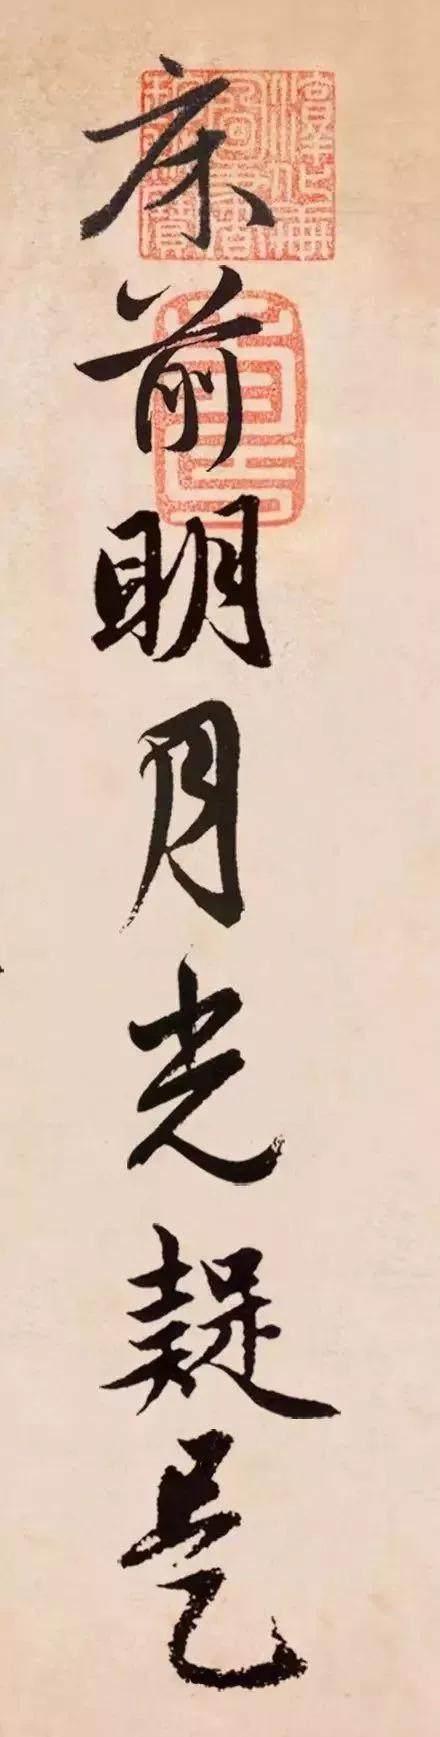 床前明月光疑是